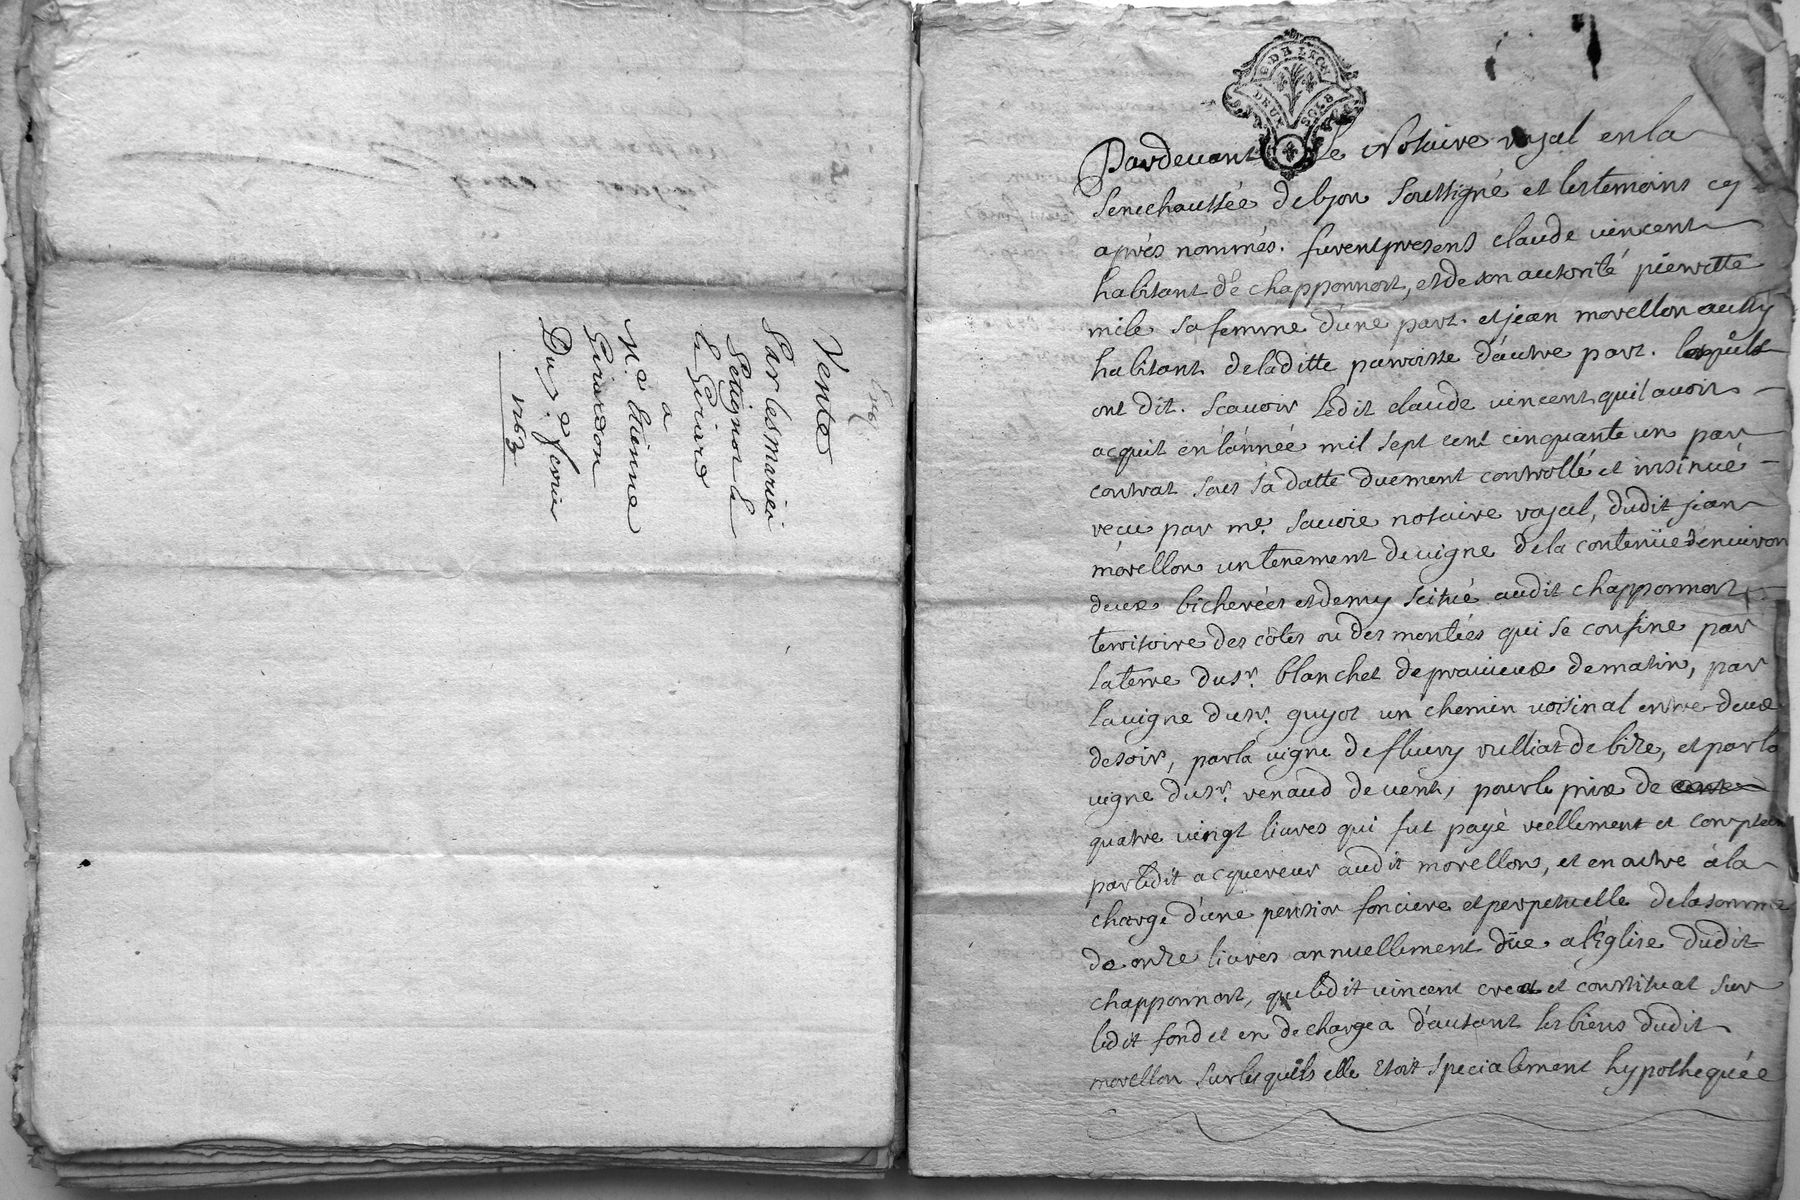 Vente
Par les mariés
Petignon &
le Girard
a
Me. Etienne
Girardon
Du 2e fevrier
1763
G. DE LYON
DEUX SOLS
Pardevant Le Notaire royal en la
Senechaussée de lyon Soussigné et les temoins cy
après nommés. furent presens claude vincent
habitant de chapponnost, et de son autorité pierrette
mile sa femme d'une part. et jean morellon aussy
habitant de laditte parroisse d'autre part. lesquels
ont dit. Scavoir Ledit claude vincent quil avoit
acquit en l'année mil sept cent cinquante un par
contrat sous sa datte duement controllé et insinué
reçu par me. Savoie notaire royal, dudit jean
morellon un tenement de vigne de la contenüe d'environ
deux bicherées et demy scitué audit chapponnost,
territoire des côtes ou des montées qui se confine par
la terre du sr. blanchet de pravieux de matin, par
la vigne du sr. guyot un chemin voisinal entre deux
de soir, par la vigne de fleury vulliat de bize, et par la
vigne du sr. renaud de vent, pour le prix de
quatre vingt livres qui fut payé réellement et comptant
par ledit acquereur audit morellon, et en outre à la
charge d'une pension fonciere et perpetuelle de la somme
de onze livres annuellement düe a l'Eglise dudit
chapponnost, que ledit vincent crea et constituat sur
ledit fond et en decharge a d'autant les biens dudit
morellon sur lesquels elle etoit specialement hypothequée